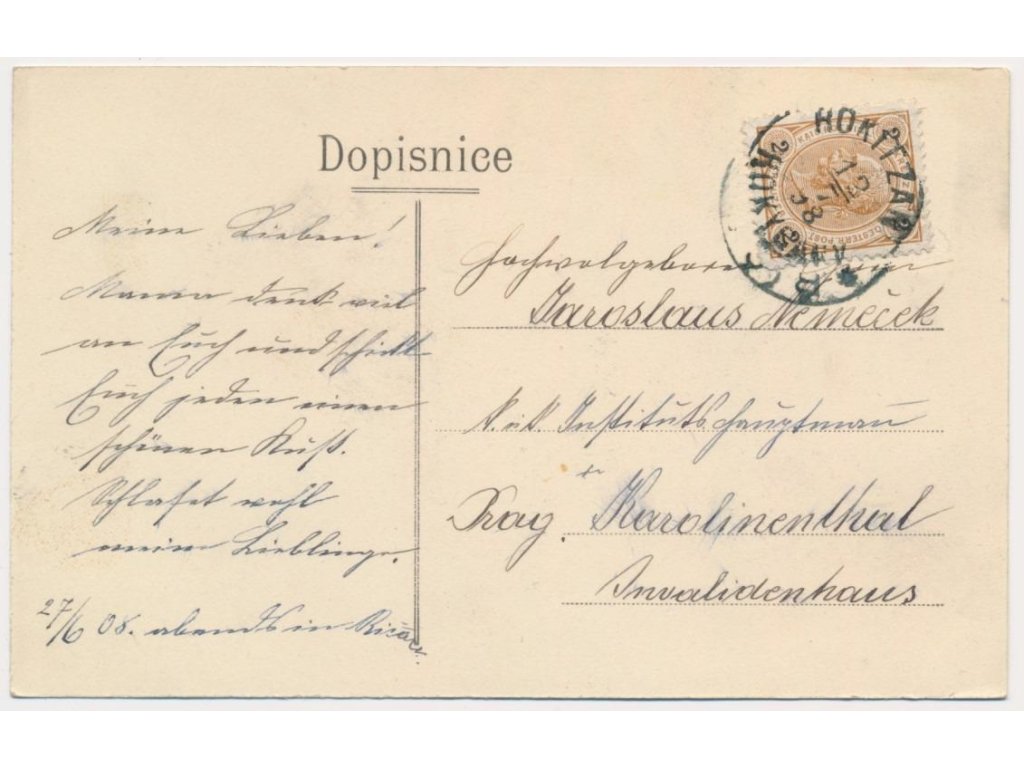 Dopisnice
Meine Lieben!
Mama denkt viel
an Euch und schickt
Euch jeden einen
schönen Kuß.
Schlafet wohl
meine Lieblinge.
27/6 08. abends in
Hochwolgeboren
Jaroslaus Němeček
k. u. k. Institutshauptmann
Prag. Karolinenthal
Invalidenhaus
ROKITZAN
ROKYCANY